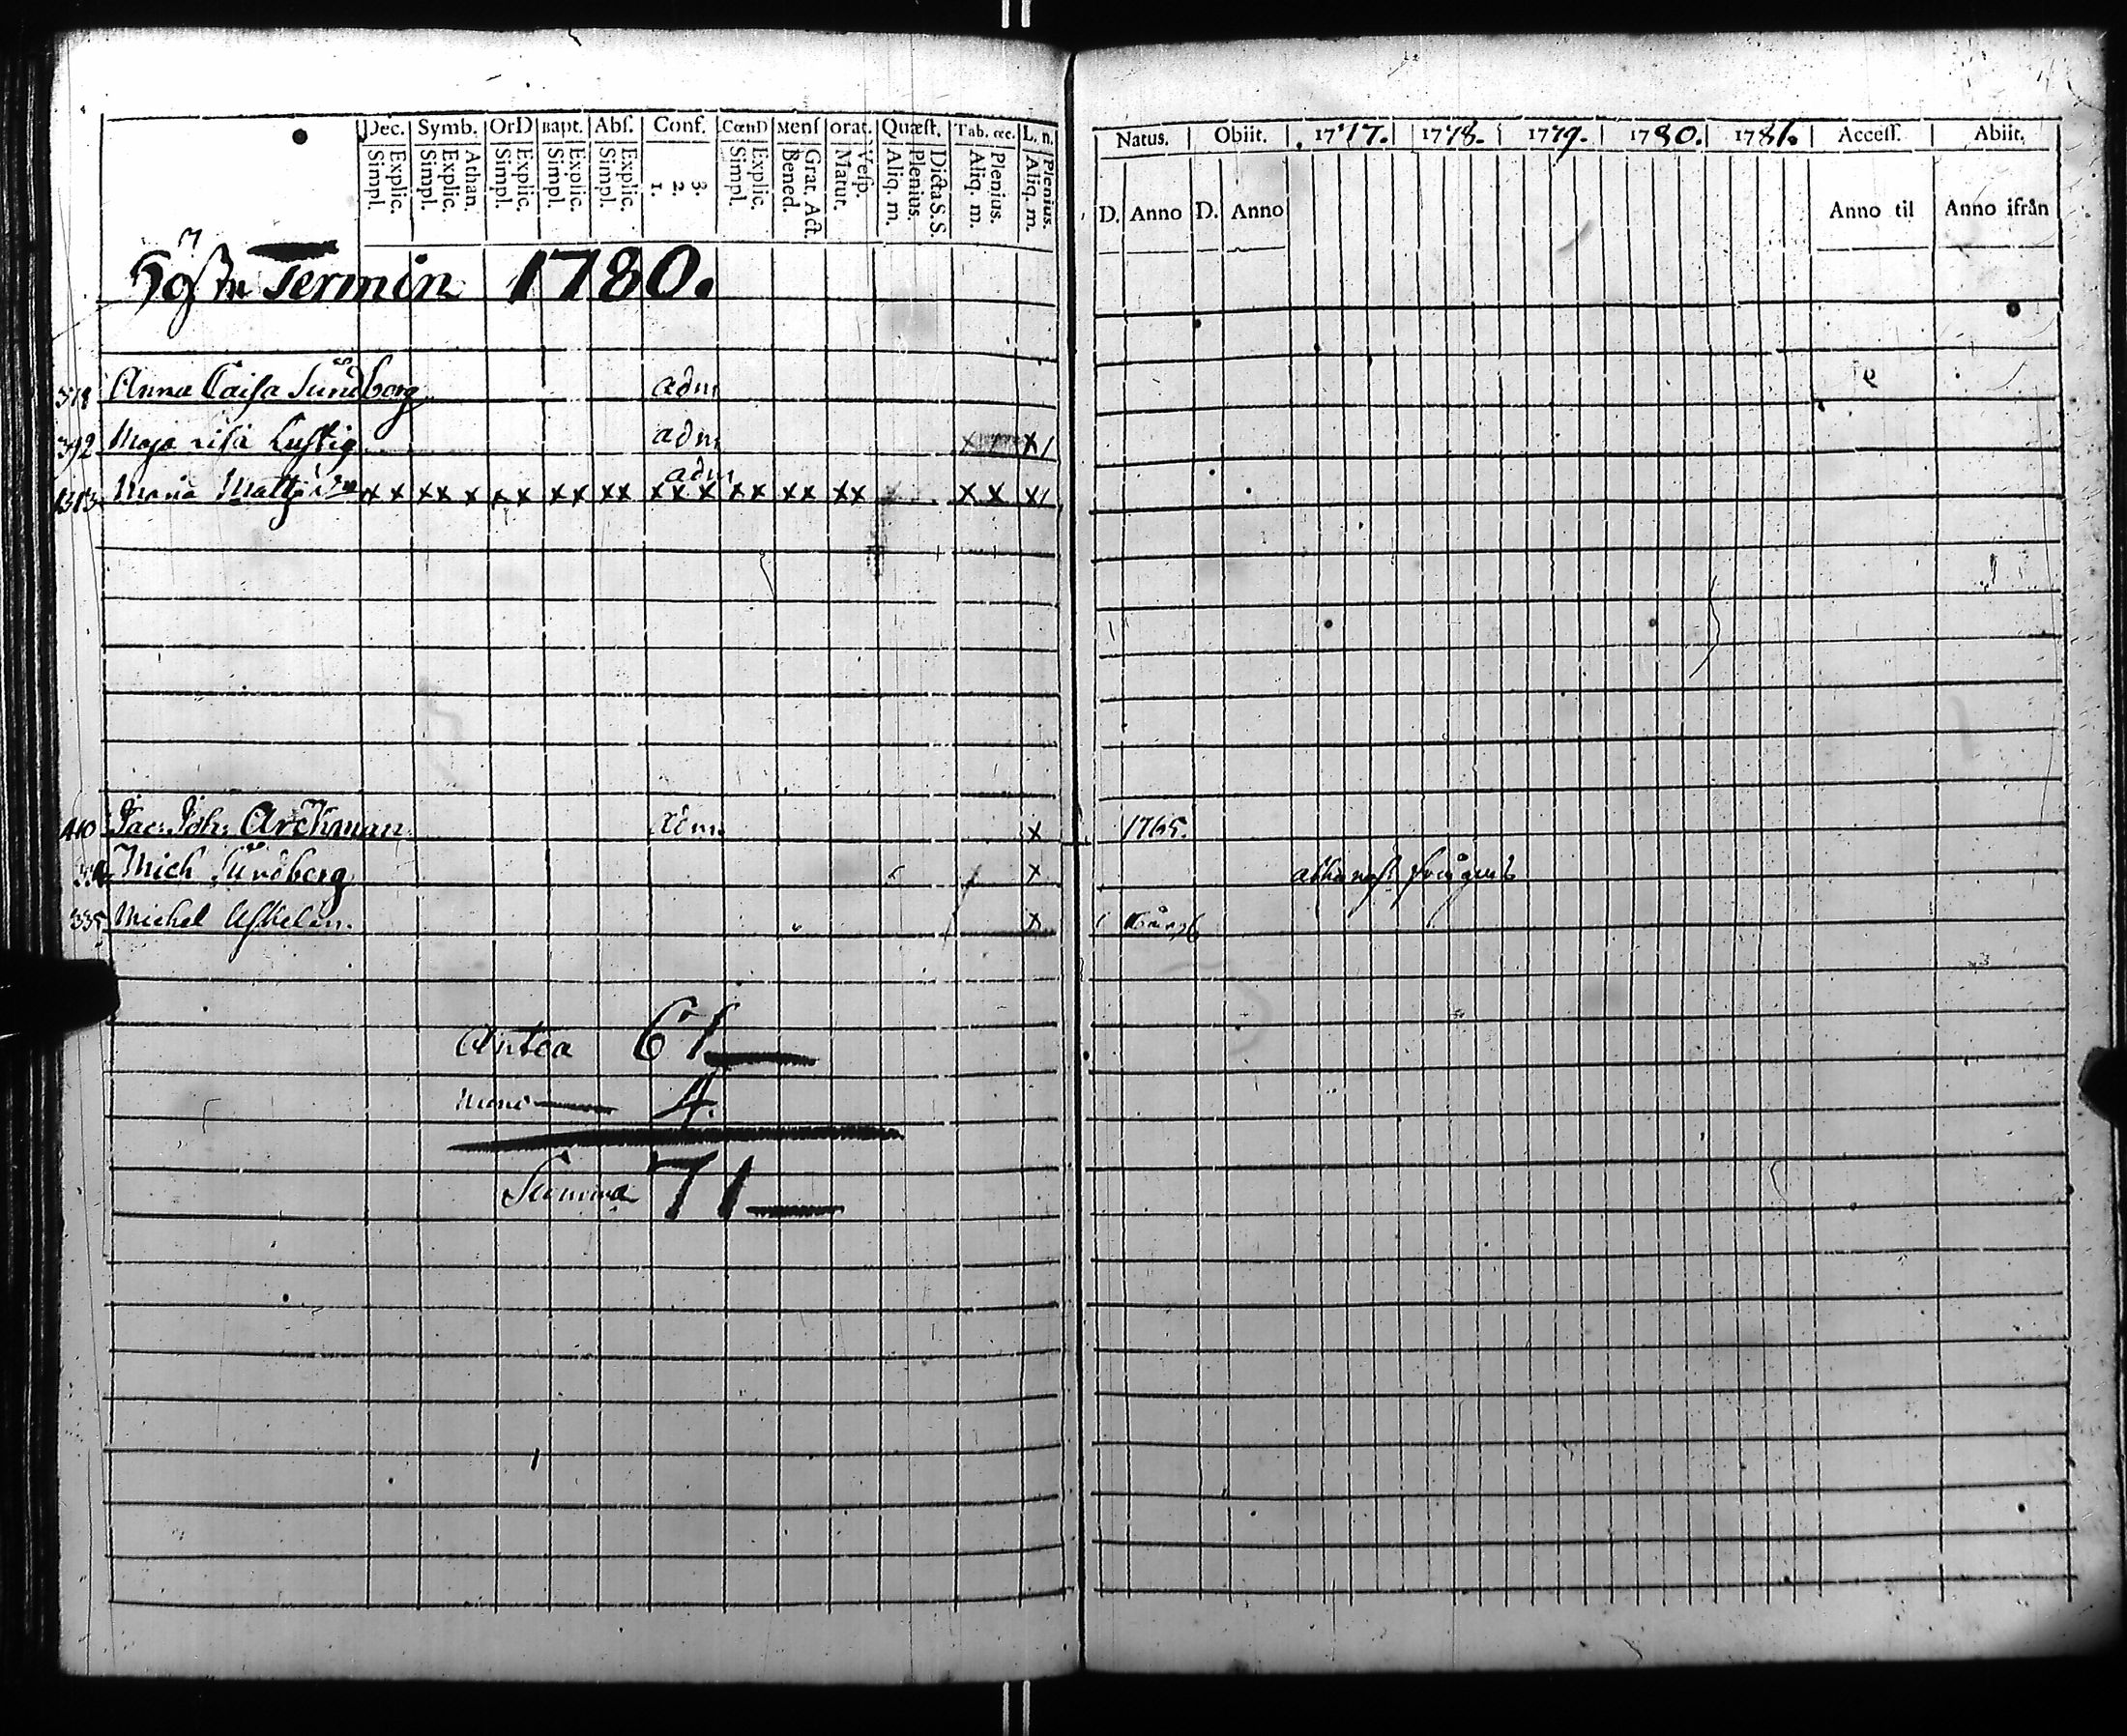 Dec. Symb. OrD Bapt. Abſ. Conf. CœnD Menſ orat. Quæſt. Tab. œc. L. n.
Simpl. Explic. Simpl. Explic. Athan. Simpl. Explic. Simpl. Explic. Simpl. Explic. 1. 2. 3. Simpl. Explic. Bened. Grat. Act. Matut. Veſp. Aliq. m. Plenius. Dicta S. S. Aliq. m. Plenius. Aliq. m. Plenius.
Termin 1780.
Anna Caiſa Sundborg adm
392 Maja Liſa Luſtig adm x x /
Maria adm
x x x x x x x x x x x x x x x x x x x x x x x /
410 Jac: Joh: Archman adm x
Mich Sundberg x
335 Michel x
Antea 61
nunc 4.
Summa 71
Natus. Obiit. 1777. 1778. 1779. 1780. 1781. Acceſſ. Abiit.
D. Anno D. Anno Anno til Anno ifrån
1765.